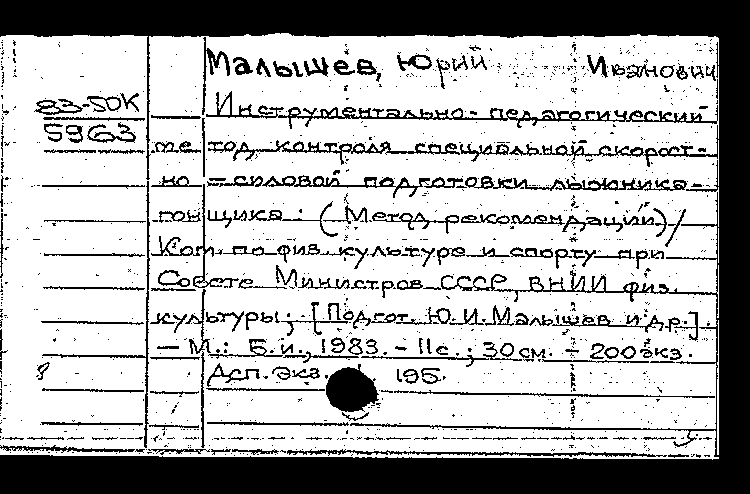 Малышев, Юрий Иванович
83-50К Инструментально-педагогический
5963 ме тод контроля специальной скорост-
но-силовой подготовки лыжника-
гонщика: (Метод. рекомендации)/
Ком. по физ. культуре и спорту при
Совете Министров СССР, ВНИИ физ.
культуры; [Подгот. Ю.И. Малышев и др.].
— М.: Б.и., 1983. - 11с.; 30см. - 200экз.
195.